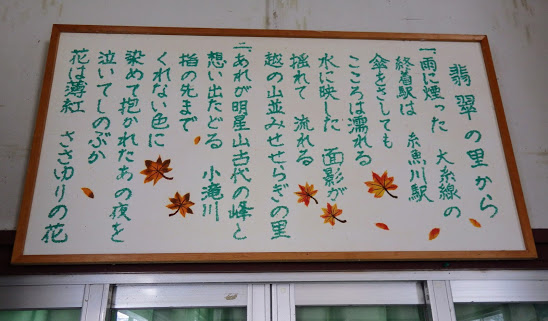 翡翠の里から
一、雨に煙った 大糸線の
終着駅は 糸魚川駅
傘をさしても
こころは濡れる
水に映した 面影が
揺れて 流れる
越の山並みせせらぎの里
二、あれが明星山古代の峰と
想い出たどる 小滝川
指の先まで
くれない色に
染めて抱かれたあの夜を
泣いてしのぶか
花は薄紅 ささゆりの花